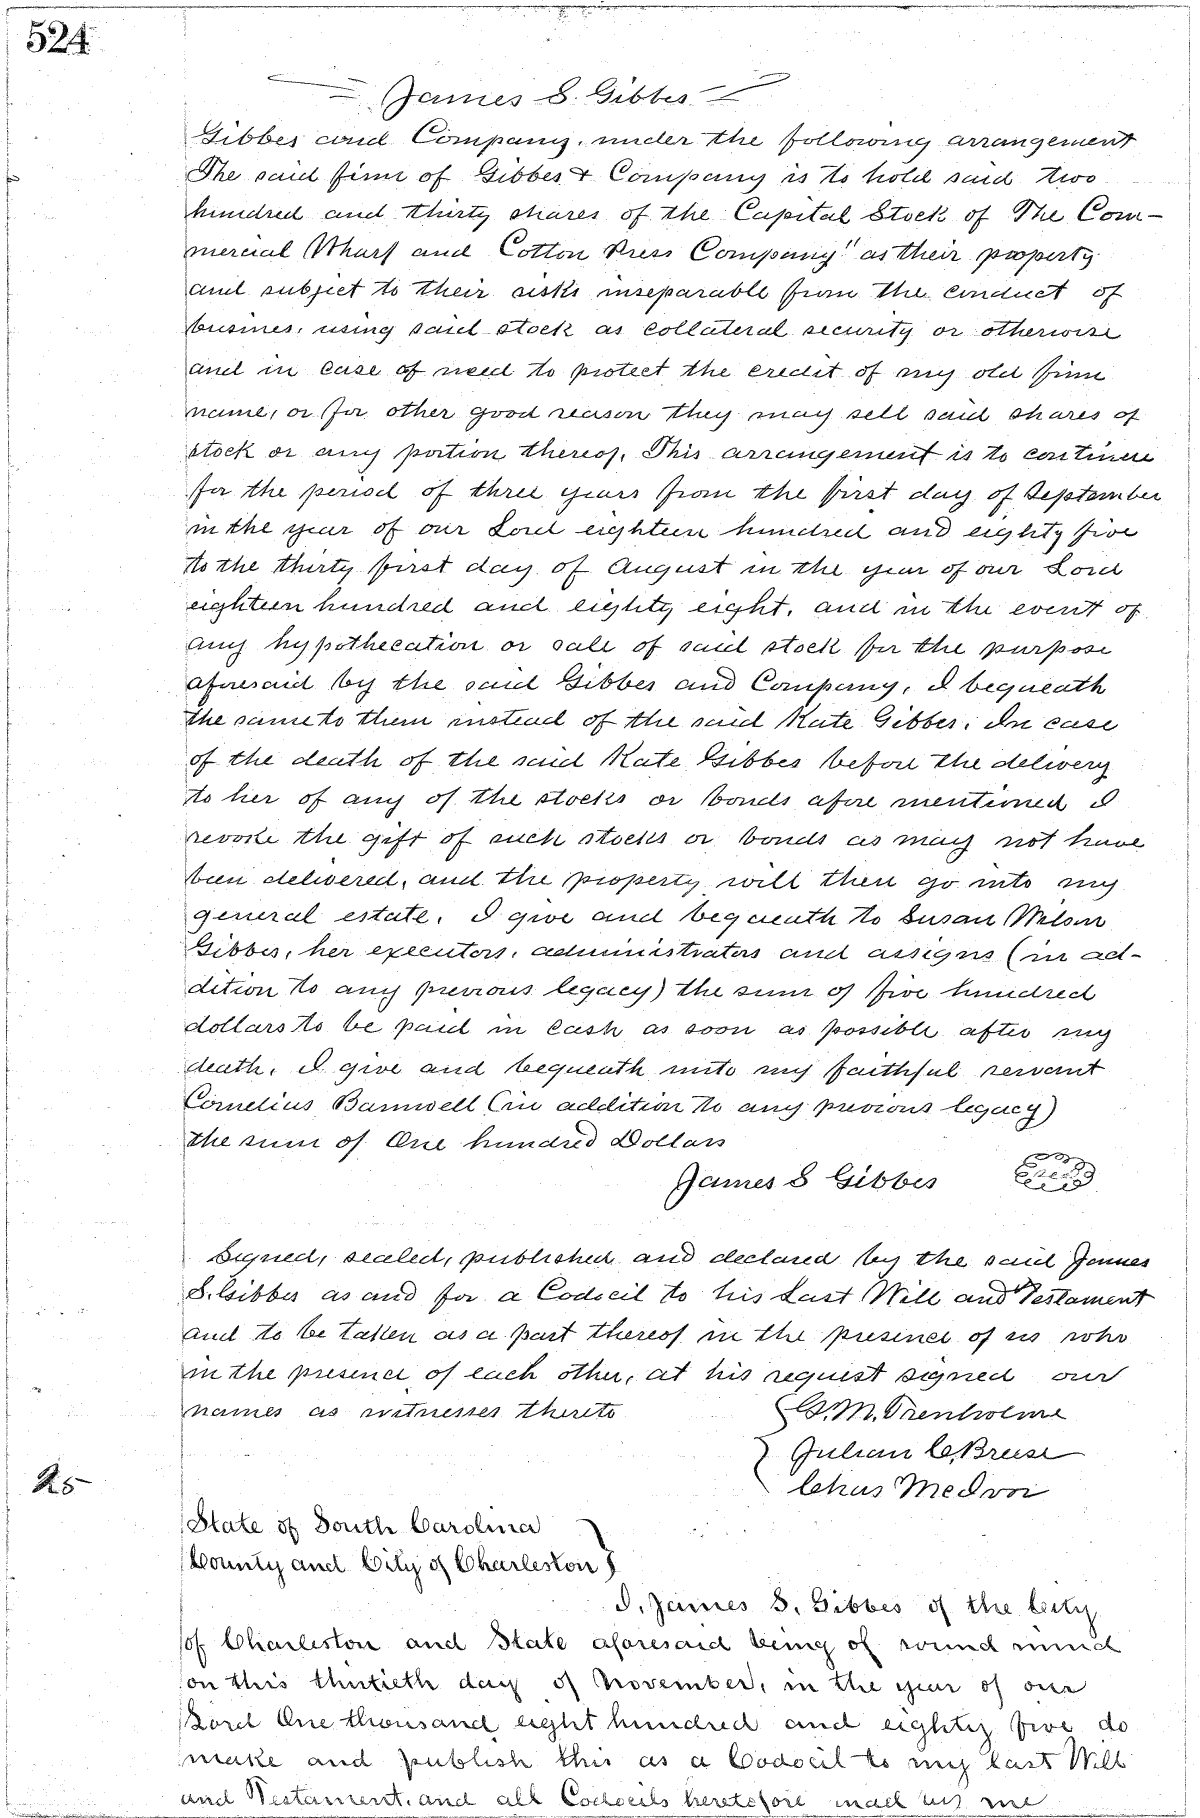 524
James S. Gibbes
Gibbes and Company, under the following arrangement
The said firm of Gibbes & Company is to hold said two
hundred and thirty shares of the Capital Stock of The Com-
mercial Wharf and Cotton Press Company" as their property
and subject to their risks inseparable from the conduct of
busines, using said stock as collateral security or otherwise
and in case of need to protect the credit of my old firm
name, or for other good reason they may sell said shares of
stock or any portion thereof. This arrangement is to continue
for the period of three years from the first day of September
in the year of our Lord eighteen hundred and eighty five
to the thirty first day of August in the year of our Lord
eighteen hundred and eighty eight, and in the event of
any hypothecation or sale of said stock for the purpose
aforesaid by the said Gibbes and Company, I bequeath
the same to them instead of the said Kate Gibbes. In case
of the death of the said Kate Gibbes before the delivery
to her of any of the stocks or bonds afore mentioned I
revoke the gift of such stocks or bonds as may not have
been delivered, and the property will then go into my
general estate. I give and bequeath to Susan Wilson
Gibbes, her executors, administrators and assigns (in ad-
dition to any previous legacy) the sum of five hundred
dollars to be paid in cash as soon as possible after my
death. I give and bequeath unto my faithful servant
Cornelius Barnwell (in addition to any previous legacy)
the sum of One hundred Dollars
James S Gibbes
Signed, sealed, published and declared by the said James
S. Gibbes as and for a Codocil to his Last Will and Testament
and to be taken as a part thereof in the presence of us who
in the presence of each other, at his request signed our
names as witnesses thereto
G. M. Trenholme
Julian C.
Chas
25
State of South Carolina
County and City of Charleston
I, James S. Gibbes of the City
of Charleston and State aforesaid being of sound mind
on this thirtieth day of November, in the year of our
Lord One thousand eight hundred and eighty five do
make and publish this as a Codocil to my last Will
and Testament, and all Codocils heretofore made by me